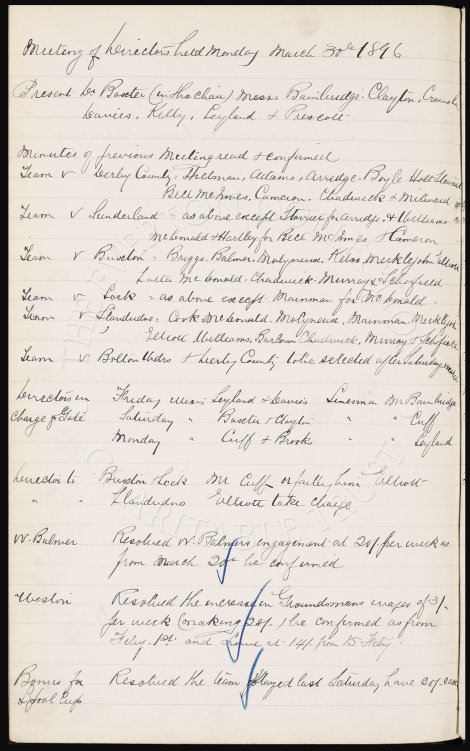 Meeting of Directors held Monday March 30th 1896
Present Dr Baxter (in the Chair) Messrs Bainbridge. Clayton,
Davies, Kelly, Leyland & Prescott
Minutes of previous Meeting read & confirmed
Team v Derby County = Hillman, Adams, Arridge. Boyle Holt Stewart
Bell McInnes, Cameron. Chadwick & Milward
Team v Sunderland = as above except Storrier for Arridge, & Williams
McDonald & Hartley for Bell McInnes & Cameron
Team v Buxton = Briggs. Balmer. Molyneux. Kelso Meiklejohn Elliott
McDonald. Chadwick. Murray & Schofield
Team v Leek = as above except Mainman for McDonald
Team v Llandudno = Cook McDonald. Molyneux. Mainman. Meiklejohn
Elliott Williams. Barlow Chadwick, Murray & Schofield
Team v Bolton Wdrs & Derby County to be selected after Saturday
Directors in Friday Messrs Leyland & Davies Linesman Mr Bainbridge
charge of Gate Saturday " Baxter & Clayton " " Cuff
Monday " Cuff & Brooks " " Leyland
Director to Buxton & Leek Mr Cuff or failing him Elliott
" " Llandudno Elliott take charge
W. Balmer Resolved W. Balmers engagement at 20/- per week as
from March 20th be confirmed
Weston Resolved the increase in Groundsmans wages of 3/-
per week (making 28/-) be confirmed as from
Feby. 1st. and Lowe at 14/- from 15 Feby
Bonus for Resolved the team played last Saturday have 20/- each
L'pool Cup